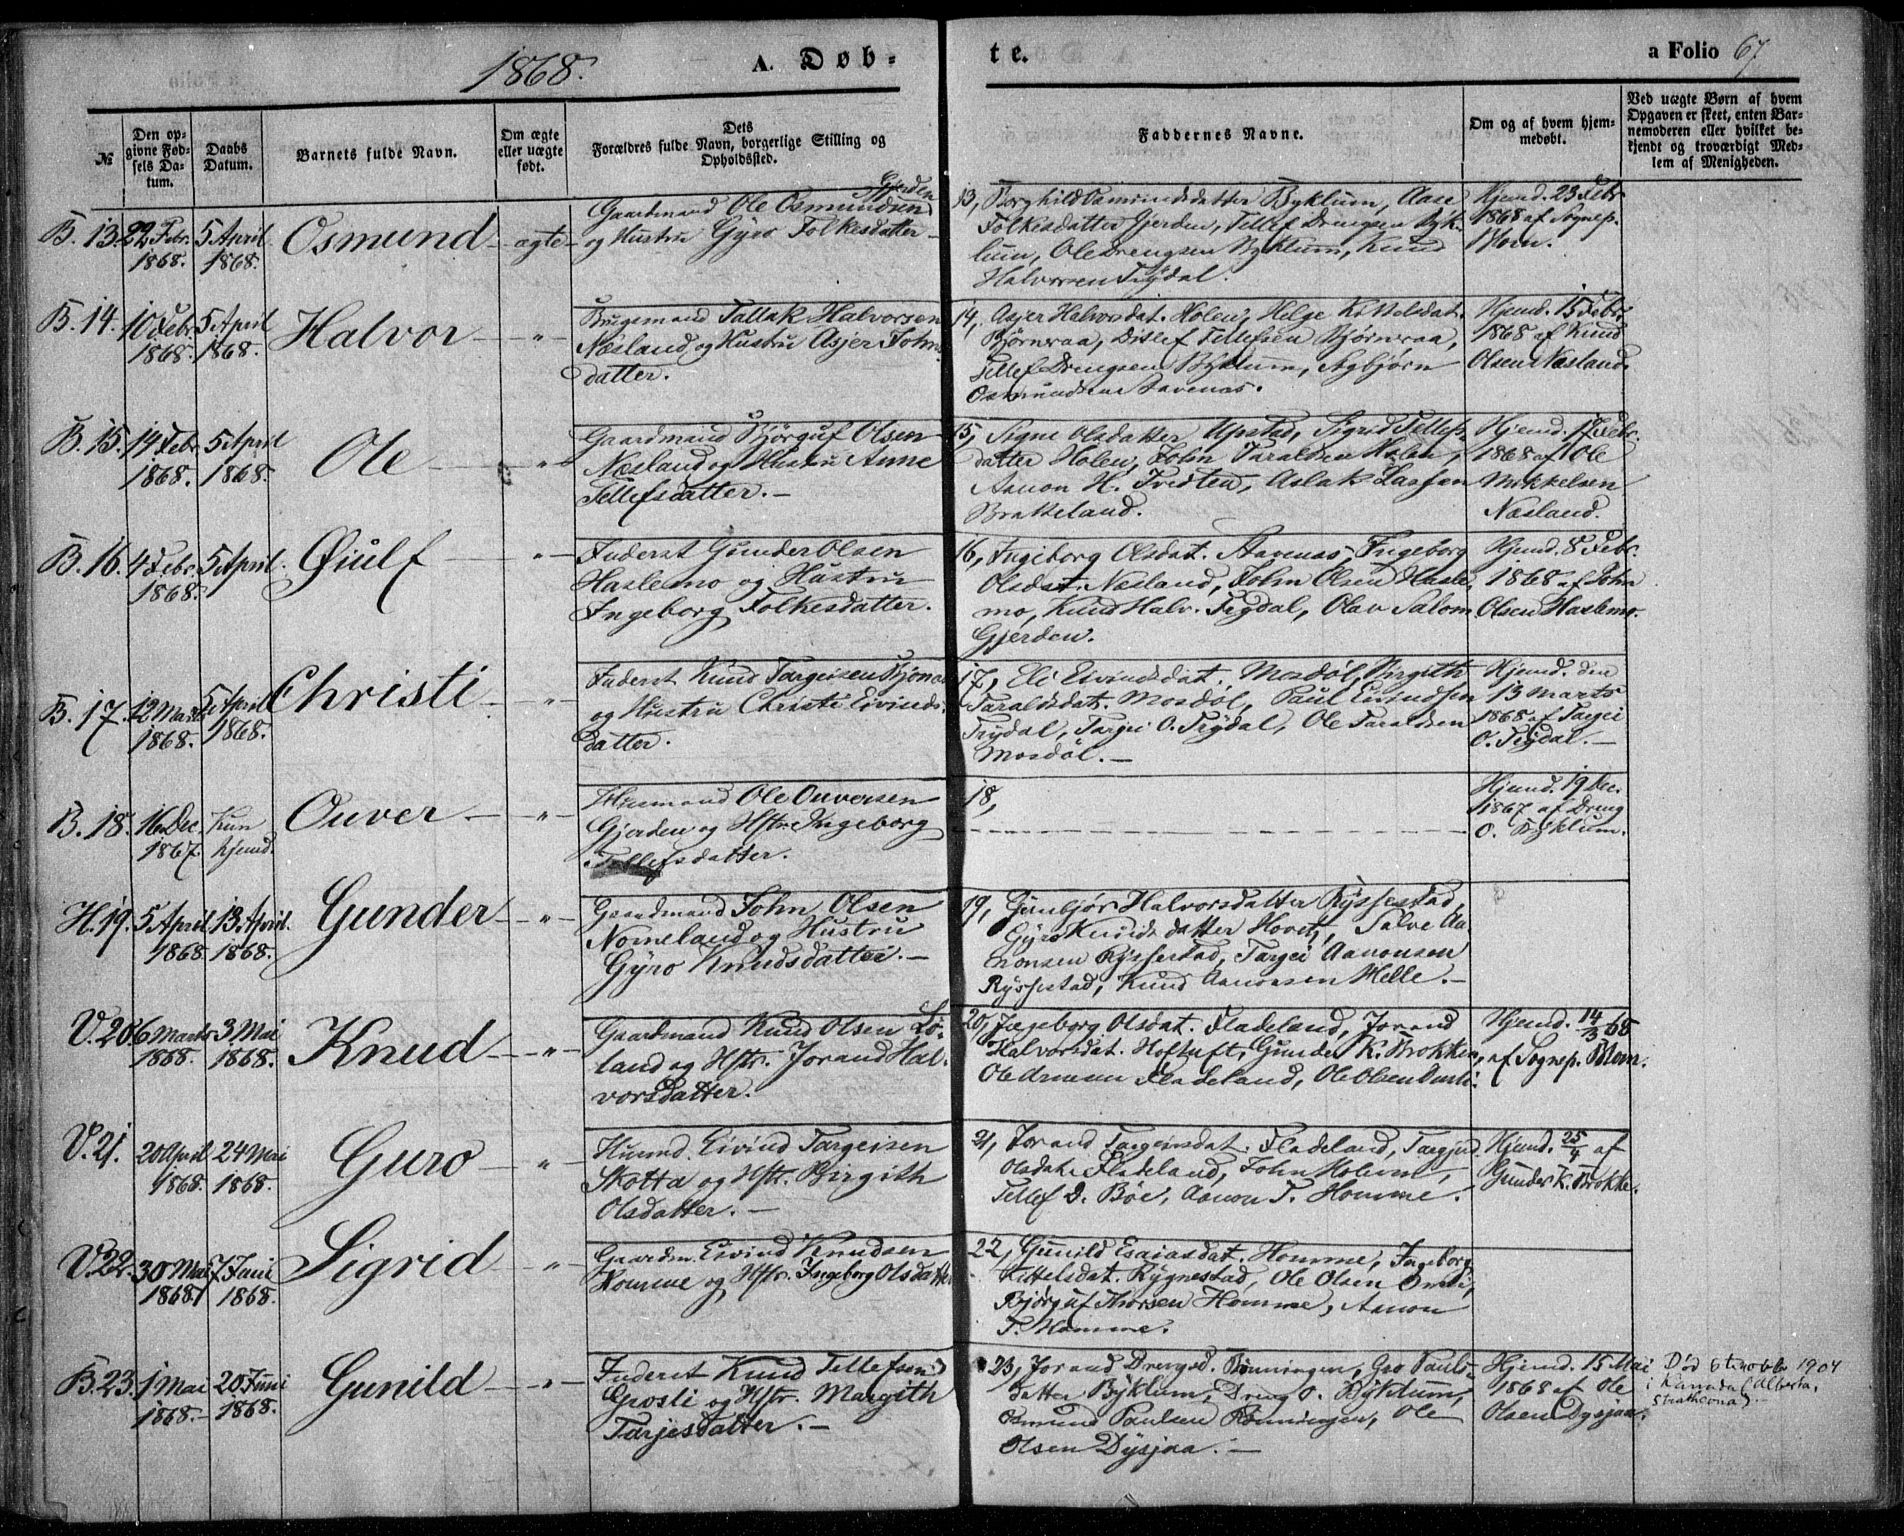 1868.
A. Døb-
te.
a Folio 67.
№
Den op-
givne Fød-
sels Da-
tum.
Daabs
Datum.
Barnets fulde Navn.
Om ægte
eller uægte
født.
Dets
Forældres fulde Navn, borgerlige Stilling og
Opholdssted.
Faddernes Navne.
Om og af hvem hjem-
medøbt.
Ved uægte Børn af hvem
Opgaven er skeet, enten Bar-
nemoderen eller hvilket be-
kjendt og troværdigt Med-
lem af Menigheden.
B. 13.
22 Febr.
1868.
5 April
1868.
Osmund
ægte
Gjerden
Gaardmand Ole Osmundsen
og Hustru Gyro Folkesdatter
13, Borghild Osmundsdatter Byklum, Aase
Folkesdatter Gjerden, Tellef Drengsen Byk-
lum, Ole Drengsen Byklum, Knud
Halvorsen Tigdal.
Hjemd. 23 Febr
1868 af Sognep.
Blom.
B. 14.
10 Febr
1868.
5 April
1868.
Halvor
"
Brugsmand Tallak Halvorsen
Næsland og Hustru Asjer John-
datter.
14, Asjer Halvorsdat. Holen, Helge Kittelsdat.
Bjørnraa, Ditlef Tellefsen Bjørnraa,
Tellef Drengsen Byklum, Asbjørn
Osmundsen Aavenæs.
Hjemd. 15 Febr.
1868 af Knud
Olsen Næsland.
B. 15.
14 Febr
1868.
5 April
1868.
Ole
"
Gaardmand Bjørguf Olsen
Næsland og Hustru Anne
Tellefsdatter.
15, Signe Olsdatter Upstad, Sigrid Tellefs-
datter Holen, John Taraldsen Holen,
Aanon H. Tveiten, Aslak Larsen
Bratteland.
Hjemd. 17 Febr.
1868 af Ole
Mikkelsen
Næsland.
B. 16.
4 Febr.
1868.
5 April.
Øiulf
"
Inderst Gunder Olsen
Haslemo og Hustru
Ingeborg Folkesdatter.
16, Ingiborg Olsdat. Aavenæs, Ingeborg
Olsdat. Næsland, John Olsen Hasle-
mo, Knud Halv. Tigdal, Olav Salom.
Gjerden.
Hjemd. 8 Febr.
1868 af John
Olsen Haslemo.
B. 17.
12 Marts
1868.
5 April
1868.
Christi
"
Inderst Knud Targeisen Bjørnaa
og Hustru Christi Eivinds-
datter.
17, Eli Eivindsdat. Mosdøl, Birgith
Taraldsdat. Mosdøl, Paul Eivindsen
Trydal, Targei O. Tigdal, Ole Taraldsen
Mosdøl.
Hjemd. den
13 Marts
1868 af Targei
O. Tigdal.
B. 18.
16 Dec.
1867.
Kun
hjemd.
Ouver
"
Husmand Ole Ouversen
Gjerden og Hstr. Ingeborg
Tellefsdatter.
18,
Hjemd. 19 Dec.
1867 af Dreng
O. Byklum.
H. 19.
5 April
1868
13 April.
1868.
Gunder
"
Gaardmand John Olsen
Nomeland og Hustru
Gyro Knudsdatter.
19, Gunbjør Halvorsdatter Ryssestad,
Gyro Knudsdatter Hovet, Salve Aa-
nonsen Ryssestad, Targei Aanonsen
Ryssestad, Knud Aanonsen Helle.
V. 20.
6 Marts
1868.
3 Mai
1868.
Knud
"
Gaardmand Knud Olsen Lø-
land og Hstr. Jorand Hal-
vorsdatter.
20, Ingeborg Olsdat. Fladeland, Jorand
Halvorsdat. Hoftuft, Gunder K. Brokke,
Ole Armun Fladeland, Ole Olsen
Hjemd. 14/3 68
af Sognep. Blom.
V. 21.
20 April
1868.
24 Mai
1868.
Guro
"
Husmd. Eivind Targeisen
Skotta og Hstr. Birgith
Olsdatter.
21, Jorand Targeisdat. Fladeland, Targjerd
Olsdat. Fladeland, John Holum,
Tellef D. Bøe, Aanon T. Homme.
Hjemd. 25/4 af
Gunder K. Brokke.
V. 22.
30 Mai
1868.
7 Juni
1868.
Sigrid
"
Gaardm. Eivind Knudsen
Homme og Hstr. Ingeborg Olsdatter
22, Gunild Esaiasdat. Homme, Ingeborg
Kittelsdat. Rygnestad, Ole Olsen
Bjørguf Thorsen Homme, Aanon
T. Homme.
B. 23.
1 Mai
1868.
20 Juni
1868.
Gunild
"
Inderst Knud Tellefsen
Grosli og Hstr. Margith
Tarjesdatter.
23, Jorand Drengsd. Rønningen, Gro Pauls-
datter Byklum, Dreng O. Byklum,
Osmund Paulsen Rønningen, Ole
Olsen Dysjaa.
Hjemd. 15 Mai
1868 af Ole
Olsen Dysjaa.
Død 6te 1904
i Kamdal, Alberta,
Strathcona.